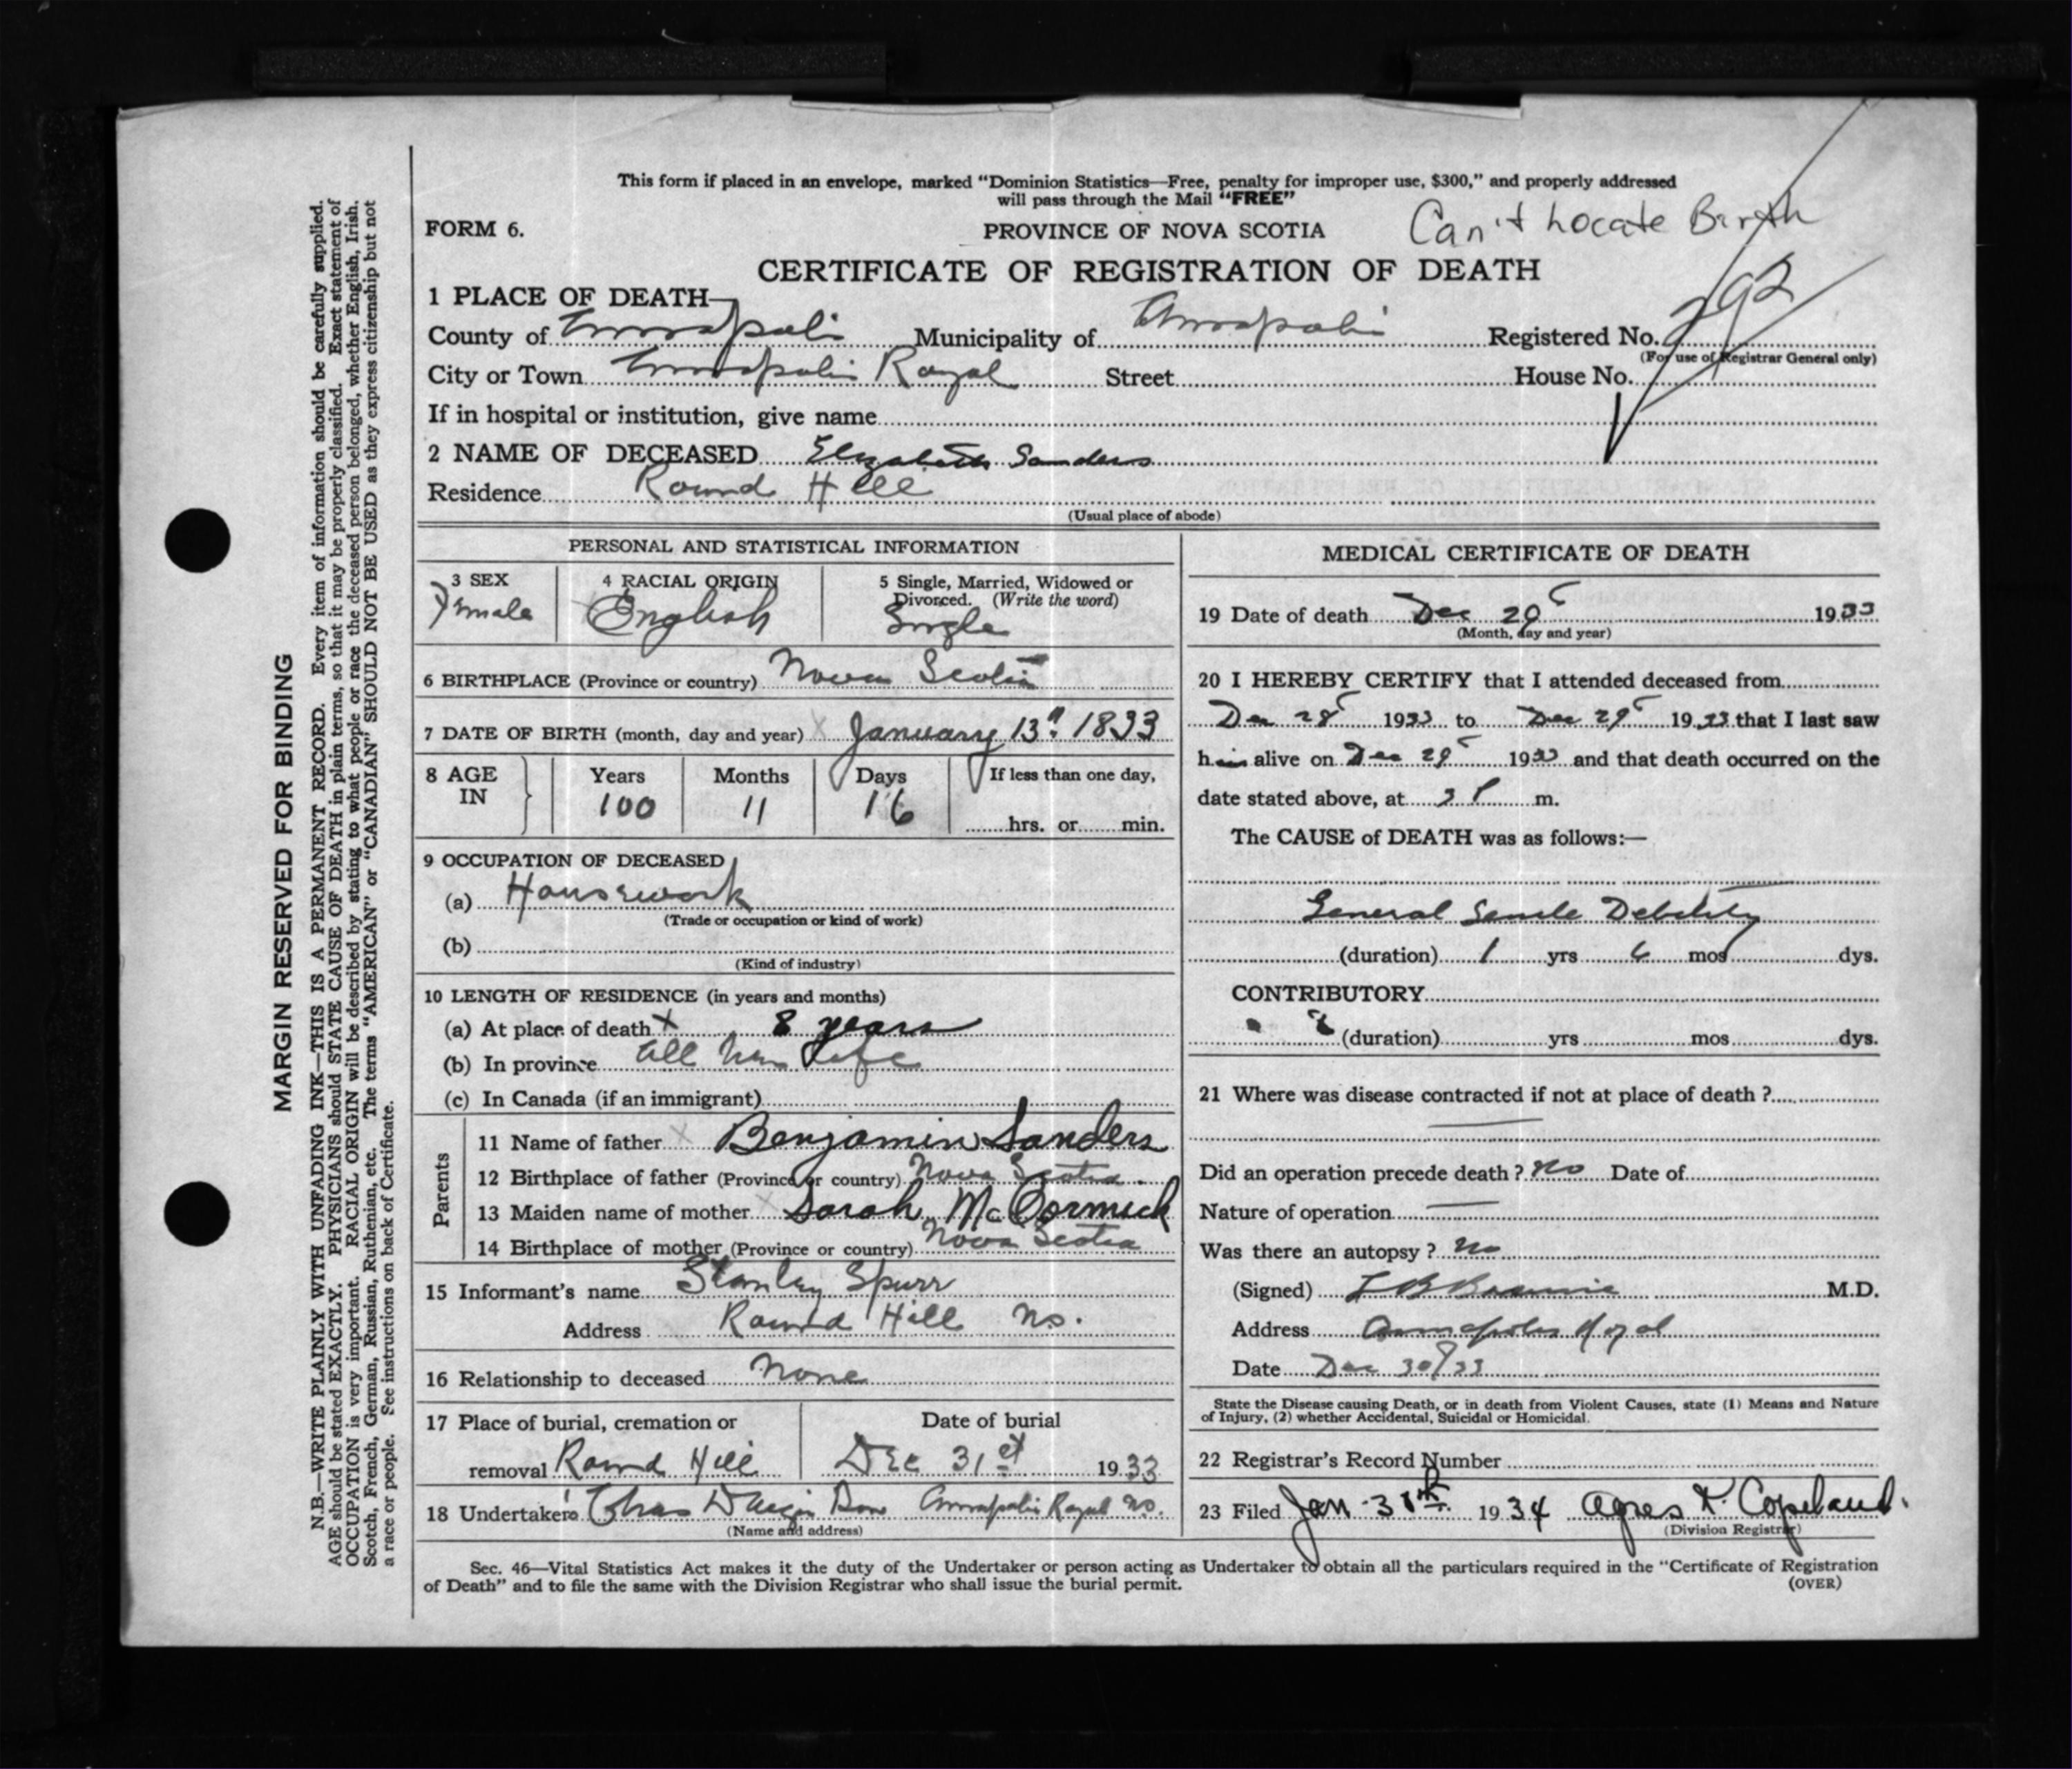 This form if placed in an envelope, marked “Dominion Statistics—Free, penalty for improper use, $300,” and properly addressed
will pass through the Mail “FREE”
FORM 6.
PROVINCE OF NOVA SCOTIA
Can't Locate Birth
CERTIFICATE OF REGISTRATION OF DEATH
1 PLACE OF DEATH—
County of Annapolis Municipality of Annapolis Registered No. 292
(For use of Registrar General only)
City or Town Annapolis Royal Street House No.
If in hospital or institution, give name
2 NAME OF DECEASED Elizabeth Sanders
Residence Round Hill
(Usual place of abode)
PERSONAL AND STATISTICAL INFORMATION
3 SEX Female
4 RACIAL ORIGIN English
5 Single, Married, Widowed or
Divorced. (Write the word)
Single
6 BIRTHPLACE (Province or country) Nova Scotia
7 DATE OF BIRTH (month, day and year) January 13th 1833
8 AGE IN
Years 100
Months 11
Days 16
If less than one day,
hrs. or min.
9 OCCUPATION OF DECEASED
(a) Housework
(Trade or occupation or kind of work)
(b)
(Kind of industry)
10 LENGTH OF RESIDENCE (in years and months)
(a) At place of death 8 years
(b) In province all her Life
(c) In Canada (if an immigrant)
Parents
11 Name of father Benjamin Sanders
12 Birthplace of father (Province or country) Nova Scotia
13 Maiden name of mother Sarah McCormick
14 Birthplace of mother (Province or country) Nova Scotia
15 Informant's name Stanley Spurr
Address Round Hill NS.
16 Relationship to deceased None
17 Place of burial, cremation or
removal Round Hill
Date of burial
Dec 31st 1933
18 Undertaker's Chas Annapolis Royal NS.
(Name and address)
MEDICAL CERTIFICATE OF DEATH
19 Date of death Dec 29 1933
(Month, day and year)
20 I HEREBY CERTIFY that I attended deceased from
Dec 28 1933 to Dec 29 1933 that I last saw
h alive on Dec 29 1933 and that death occurred on the
date stated above, at 3 P m.
The CAUSE of DEATH was as follows:—
General Senile Debility
(duration) 1 yrs 6 mos dys.
CONTRIBUTORY
(duration) yrs mos dys.
21 Where was disease contracted if not at place of death ?
Did an operation precede death ? no Date of
Nature of operation —
Was there an autopsy ? no
(Signed) L B Braine M.D.
Address Annapolis Royal
Date Dec 30/33
State the Disease causing Death, or in death from Violent Causes, state (1) Means and Nature
of Injury, (2) whether Accidental, Suicidal or Homicidal.
22 Registrar's Record Number
23 Filed Jan 1934 Agnes K. Copeland.
(Division Registrar)
Sec. 46—Vital Statistics Act makes it the duty of the Undertaker or person acting as Undertaker to obtain all the particulars required in the “Certificate of Registration
of Death” and to file the same with the Division Registrar who shall issue the burial permit.
(OVER)
MARGIN RESERVED FOR BINDING
N.B.—WRITE PLAINLY WITH UNFADING INK—THIS IS A PERMANENT RECORD. Every item of information should be carefully supplied.
AGE should be stated EXACTLY. PHYSICIANS should STATE CAUSE OF DEATH in plain terms, so that it may be properly classified. Exact statement of
OCCUPATION is very important. RACIAL ORIGIN will be described by stating to what people or race the deceased person belonged, whether English, Irish,
Scotch, French, German, Russian, Ruthenian, etc. The terms “AMERICAN” or “CANADIAN” SHOULD NOT BE USED as they express citizenship but not
a race or people. See instructions on back of Certificate.